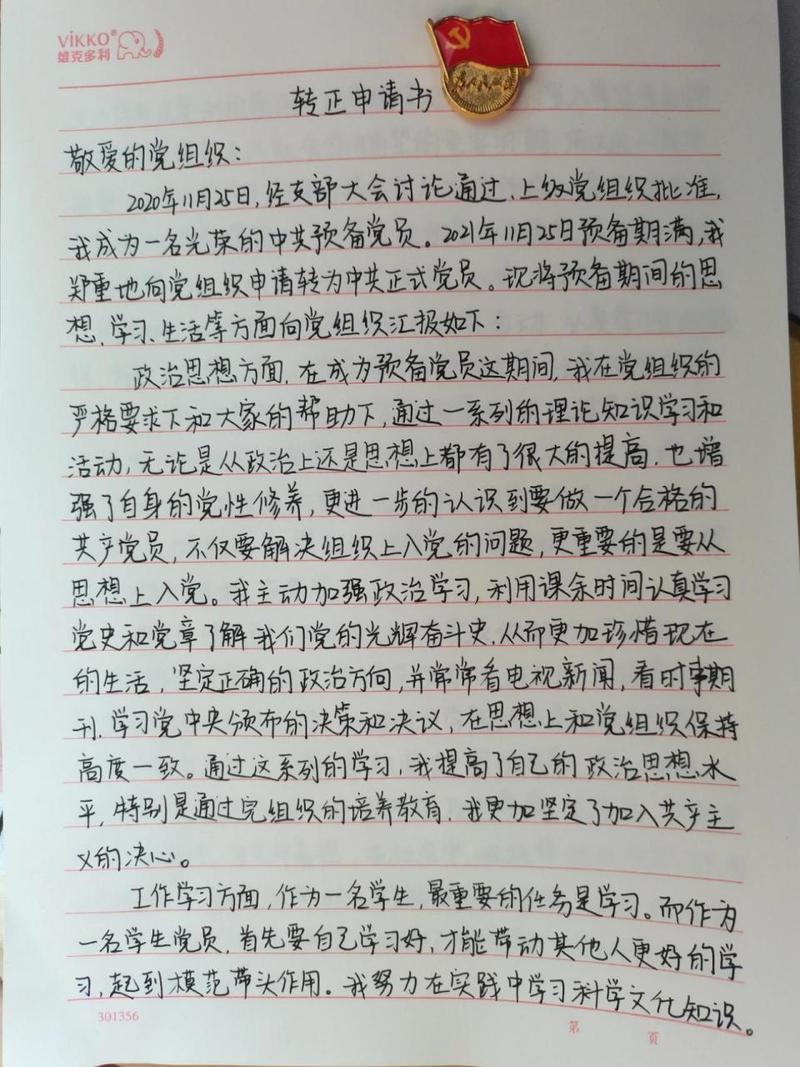 ViKKO®
维克多利
转正申请书
敬爱的党组织：
2020年11月25日，经支部大会讨论通过，上级党组织批准，
我成为一名光荣的中共预备党员。2021年11月25日预备期满，我
郑重地向党组织申请转为中共正式党员。现将预备期间的思
想、学习、生活等方面向党组织汇报如下：
政治思想方面，在成为预备党员这期间，我在党组织的
严格要求下和大家的帮助下，通过一系列的理论知识学习和
活动，无论是从政治上还是思想上都有了很大的提高，也增
强了自身的党性修养，更进一步的认识到要做一个合格的
共产党员，不仅要解决组织上入党的问题，更重要的是要从
思想上入党。我主动加强政治学习，利用课余时间认真学习
党史和党章了解我们党的光辉奋斗史，从而更加珍惜现在
的生活，坚定正确的政治方向，并常常看电视新闻，看时事期
刊，学习党中央颁布的决策和决议，在思想上和党组织保持
高度一致。通过这系列的学习，我提高了自己的政治思想水
平，特别是通过完组织的培养教育，我更加坚定了加入共产主
义的决心。
工作学习方面，作为一名学生，最重要的任务是学习。而作为
一名学生党员，首先要自己学习好，才能带动其他人更好的学
习，起到模范带头作用。我努力在实践中学习科学文化知识。
301356
第 頁